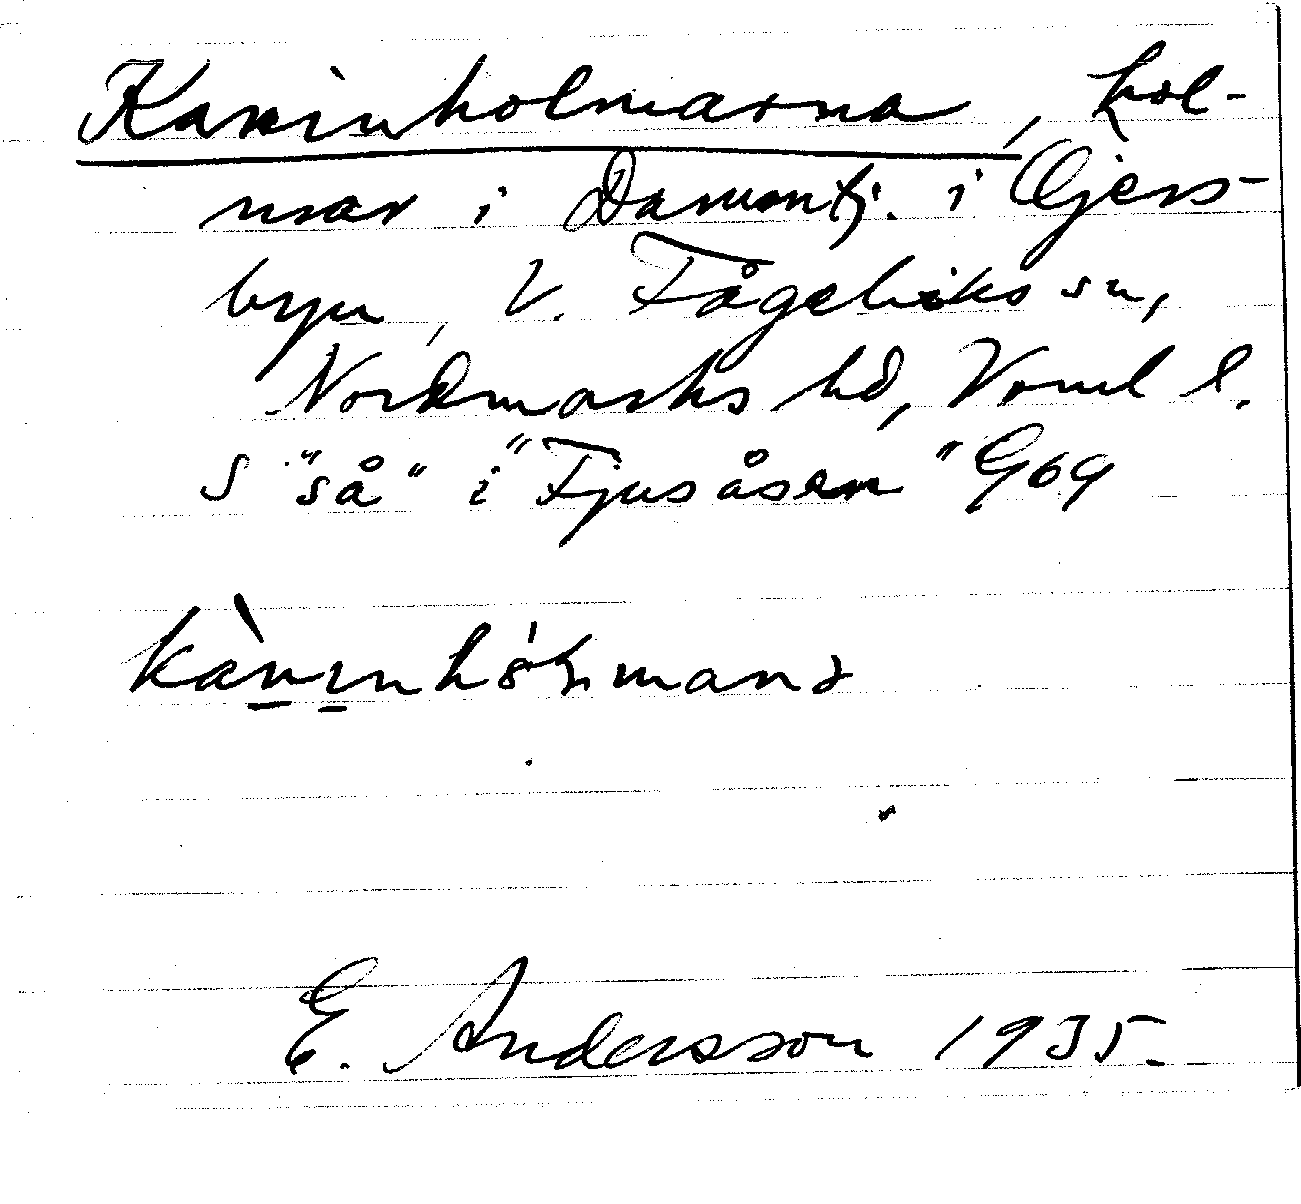 Karinholmarna, hol-
mar i Dammtj. i Öjers-
byn, V. Fågelviks sn,
Nordmarks hd, Värml l.
S "så" i "Fjusåsen" G69
E. Andersson 1935.